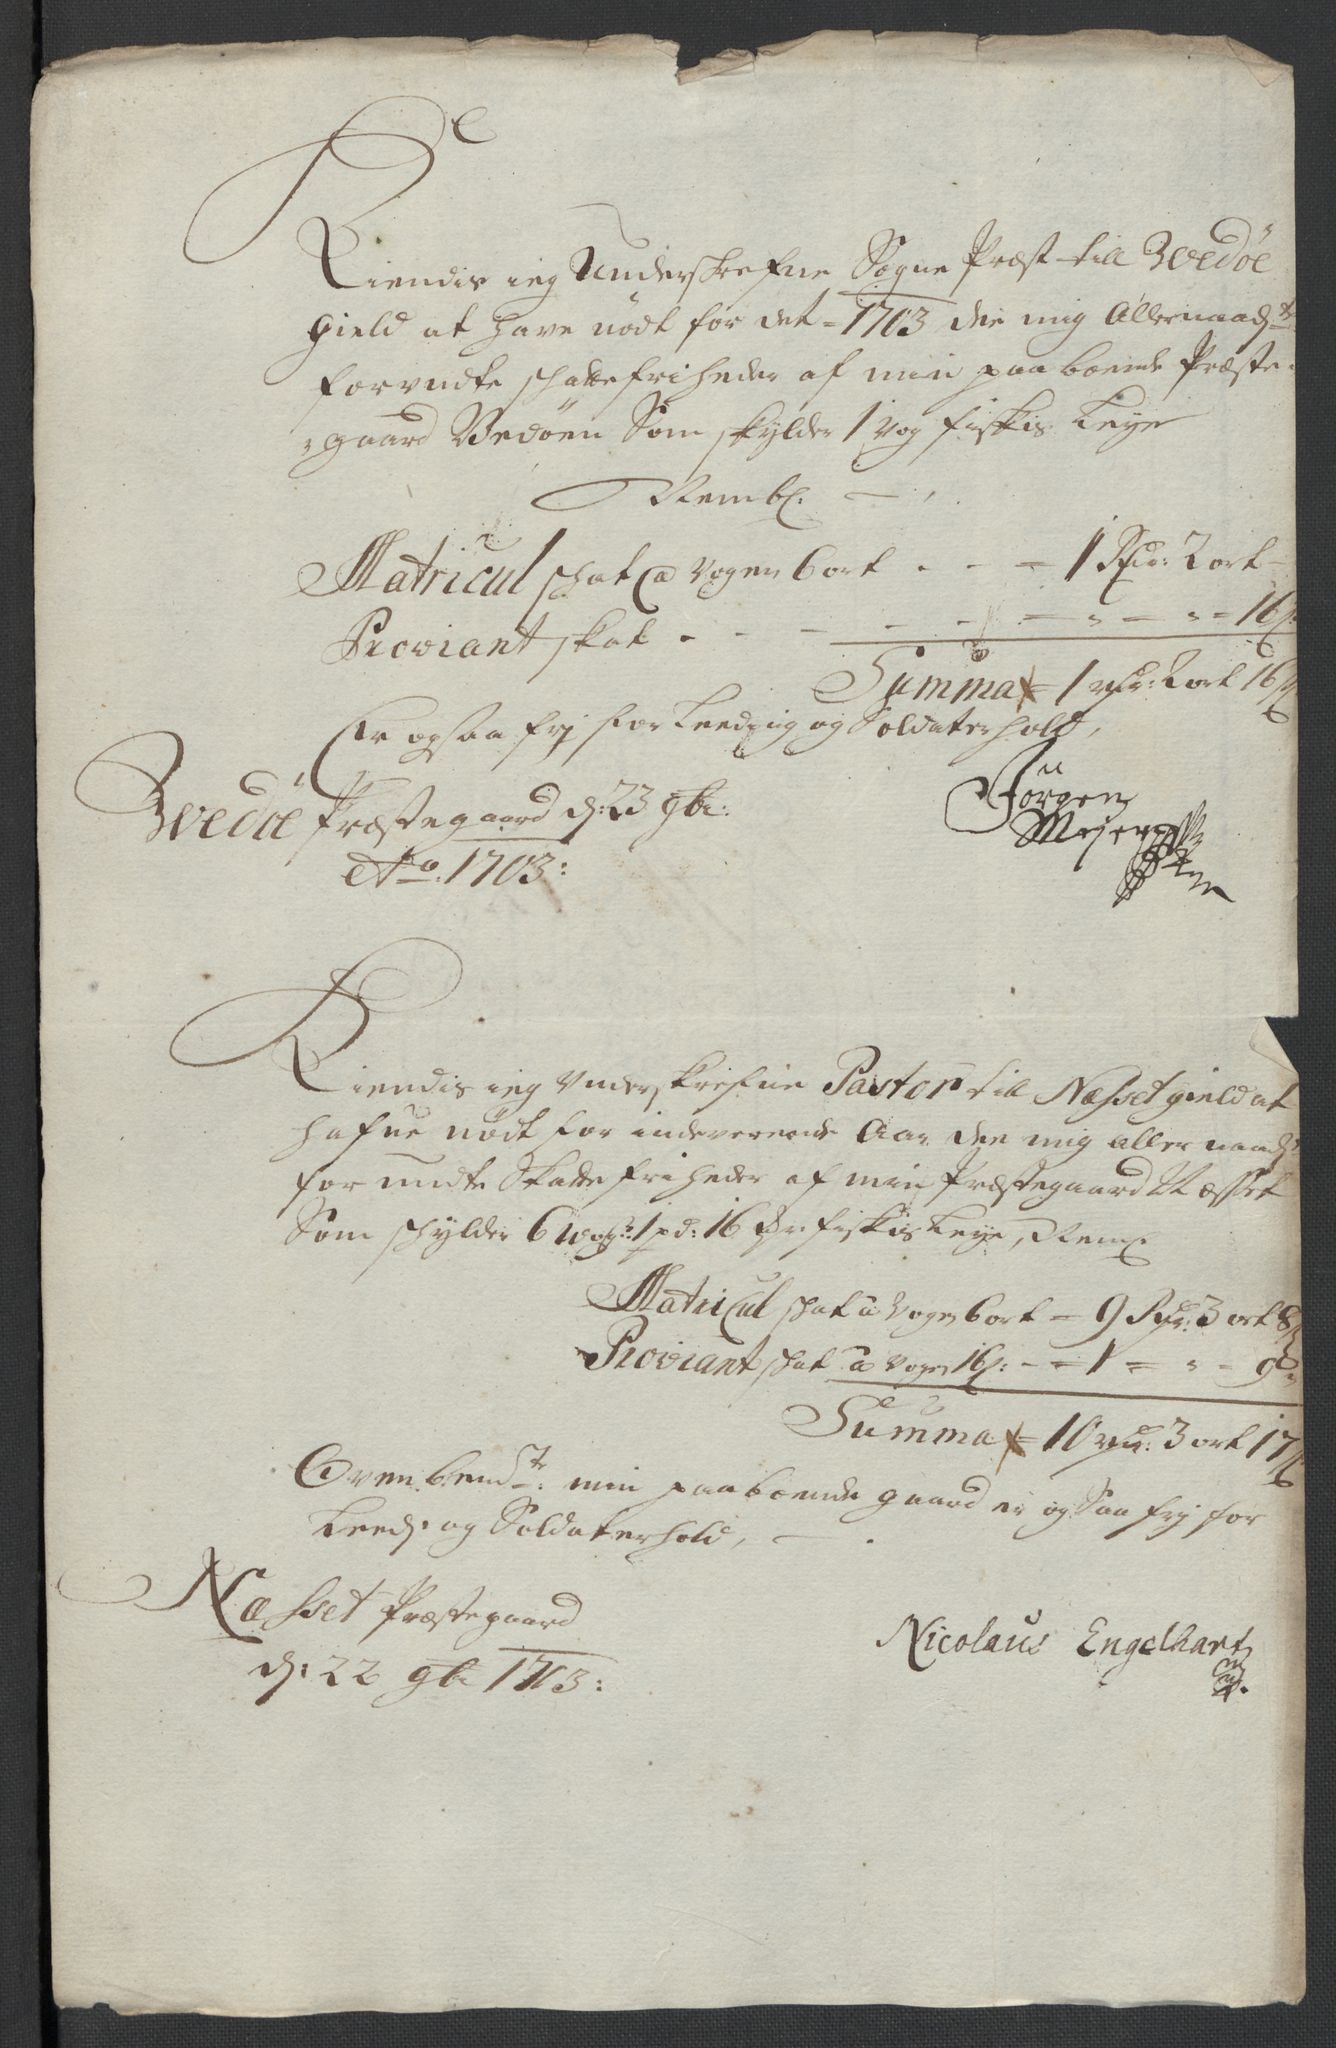 Kiendis ieg Underskrefne Sogne Præst till Wedøe
gield at have nødt for det 1703 die mig Allernaadst
forundte skattefriheder af min paaboende Præste-
gaard Vedøen Som skylder 1 Vog fiskis Leye
Neml:
Matricul skat a Vogen 6 ort - - - 1 Rdr: 2 ort
Proviant skat - - - - - - - - - - 16 s:
Summa = 1 rdr: 2 ort 16 s
Er ogsaa frj for Leeding og Soldaterhold,
Wedøe Præstegaard d: 23 9br: Jörgen
Ao. 1703: Mejer
Kiendis ieg Underskrefne Pastor till Næsset gield at
hafue nødt for indeverende Aar die mig Aller naadst
forundte Skattefriheder af min Præstegaard Næsset
Som skylder 6 wog: 1 pd: 16 fiskis Leye, Neml
Matricul skat a Vogen 6 ort = 9 Rdr: 3 ort 8 s
Proviant skat a Vogen 16 s: - = 1 = " - 9 "
Summa = 10 rdr: 3 ort 17 s
Ovenbemte: min paaboende gaard er og Saa frj for
Leed: og Soldaterhold,
Næsset Præstegaard
d: 22 9br 1703: Nicolaus Engelhart